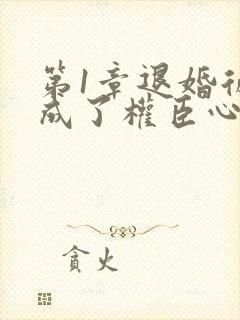 第1章退婚後
成了權臣心
貪火